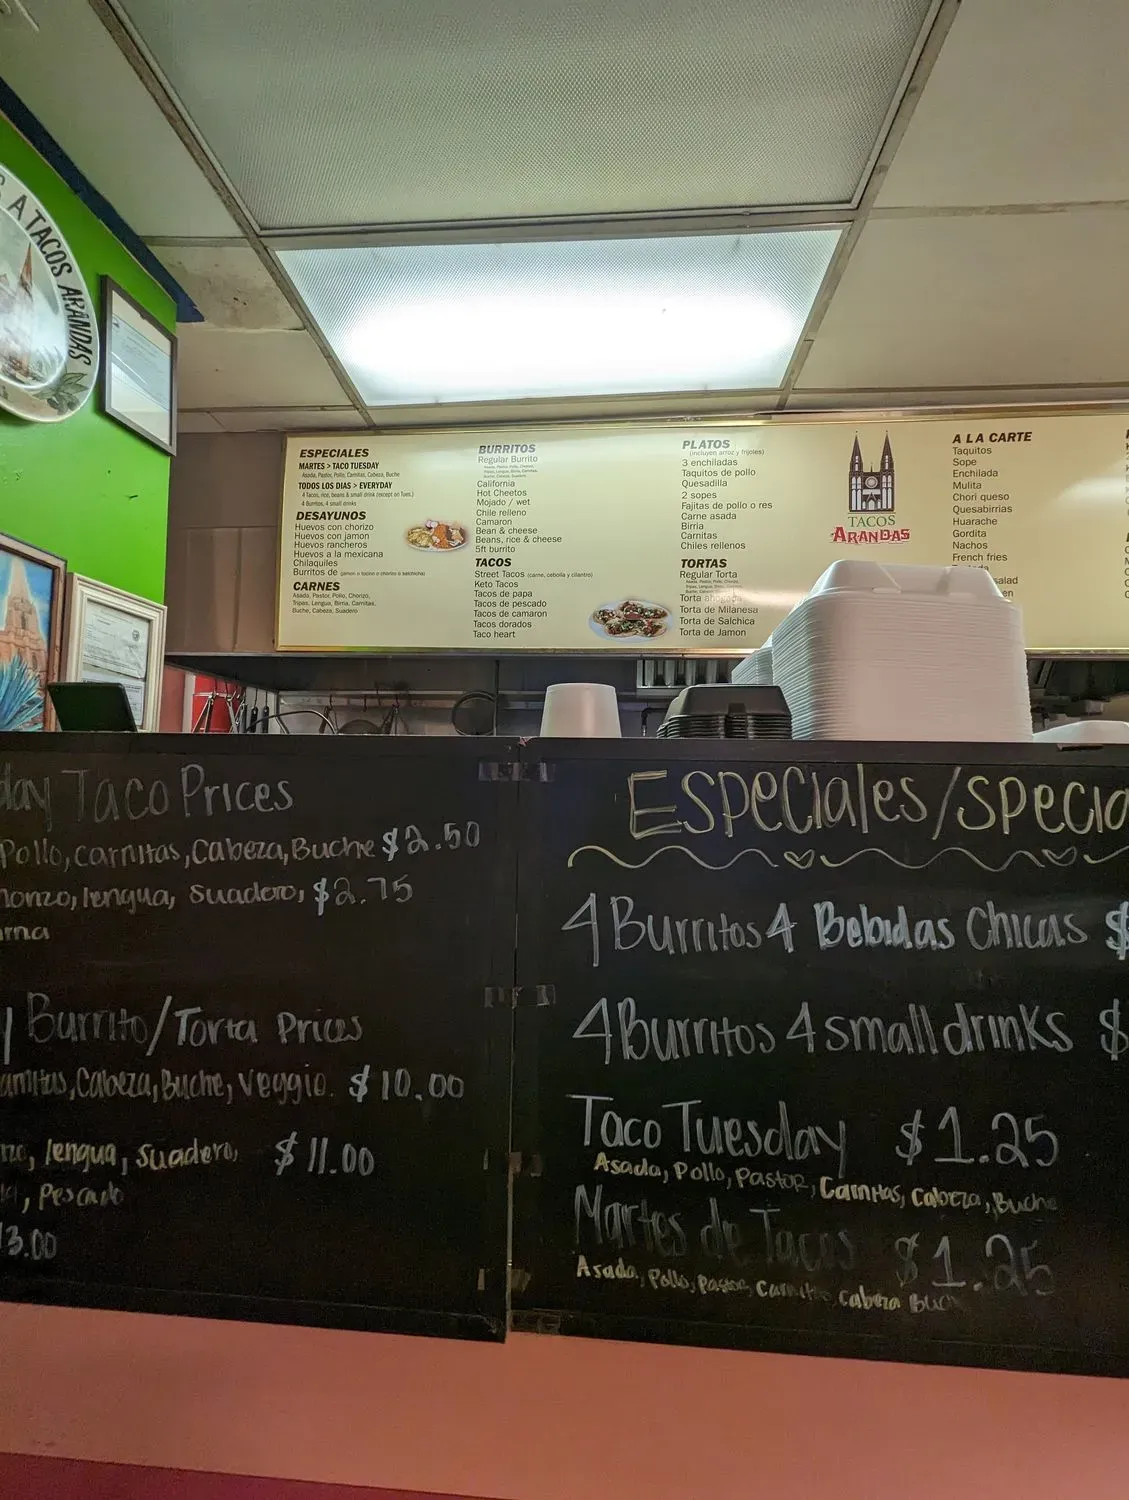 A TACOS ARANDAS
ESPECIALES
MARTES > TACO TUESDAY
Asada, Pastor, Pollo, Carnitas, Cabeza, Buche
TODOS LOS DIAS > EVERYDAY
4 Tacos, rice, beans & small drink (except on Tues.)
4 Burritos, 4 small drinks
DESAYUNOS
Huevos con chorizo
Huevos con jamon
Huevos rancheros
Huevos a la mexicana
Chilaquiles
Burritos de (jamon o tocino o chorizo o salchicha)
CARNES
Asada, Pastor, Pollo, Chorizo,
Tripas, Lengua, Birria, Carnitas,
Buche, Cabeza, Suadero
BURRITOS
Regular Burrito
Asada, Pastor, Pollo, Chorizo,
Tripas, Lengua, Birria, Carnitas,
Buche, Cabeza, Suadero
California
Hot Cheetos
Mojado / wet
Chile relleno
Camaron
Bean & cheese
Beans, rice & cheese
5ft burrito
TACOS
Street Tacos (carne, cebolla y cilantro)
Keto Tacos
Tacos de papa
Tacos de pescado
Tacos de camaron
Tacos dorados
Taco heart
PLATOS
(incluyen arroz y frijoles)
3 enchiladas
Taquitos de pollo
Quesadilla
2 sopes
Fajitas de pollo o res
Carne asada
Birria
Carnitas
Chiles rellenos
TORTAS
Regular Torta
Asada, Pastor, Pollo, Chorizo,
Tripas, Lengua, Birria, Carnitas,
Buche, Cabeza, Suadero
Torta ahogada
Torta de Milanesa
Torta de Salchica
Torta de Jamon
TACOS
ARANDAS
A LA CARTE
Taquitos
Sope
Enchilada
Mulita
Chori queso
Quesabirrias
Huarache
Gordita
Nachos
French fries
salad
day Taco Prices
Pollo, Carnitas, Cabeza, Buche $2.50
lengua, Suadero, $2.75
Burrito/Torta Prices
Cabeza, Buche, Veggie. $10.00
lengua, Suadero, $11.00
, Pescado
3.00
ESPECIALES/SPECIA
4 Burritos 4 Bebidas Chicas $
4 Burritos 4 small drinks $
Taco Tuesday $1.25
Asada, Pollo, Pastor, Carnitas, Cabeza, Buche
Martes de Tacos $1.25
Asada, Pollo, Pastor, Carnitas, Cabeza Buch